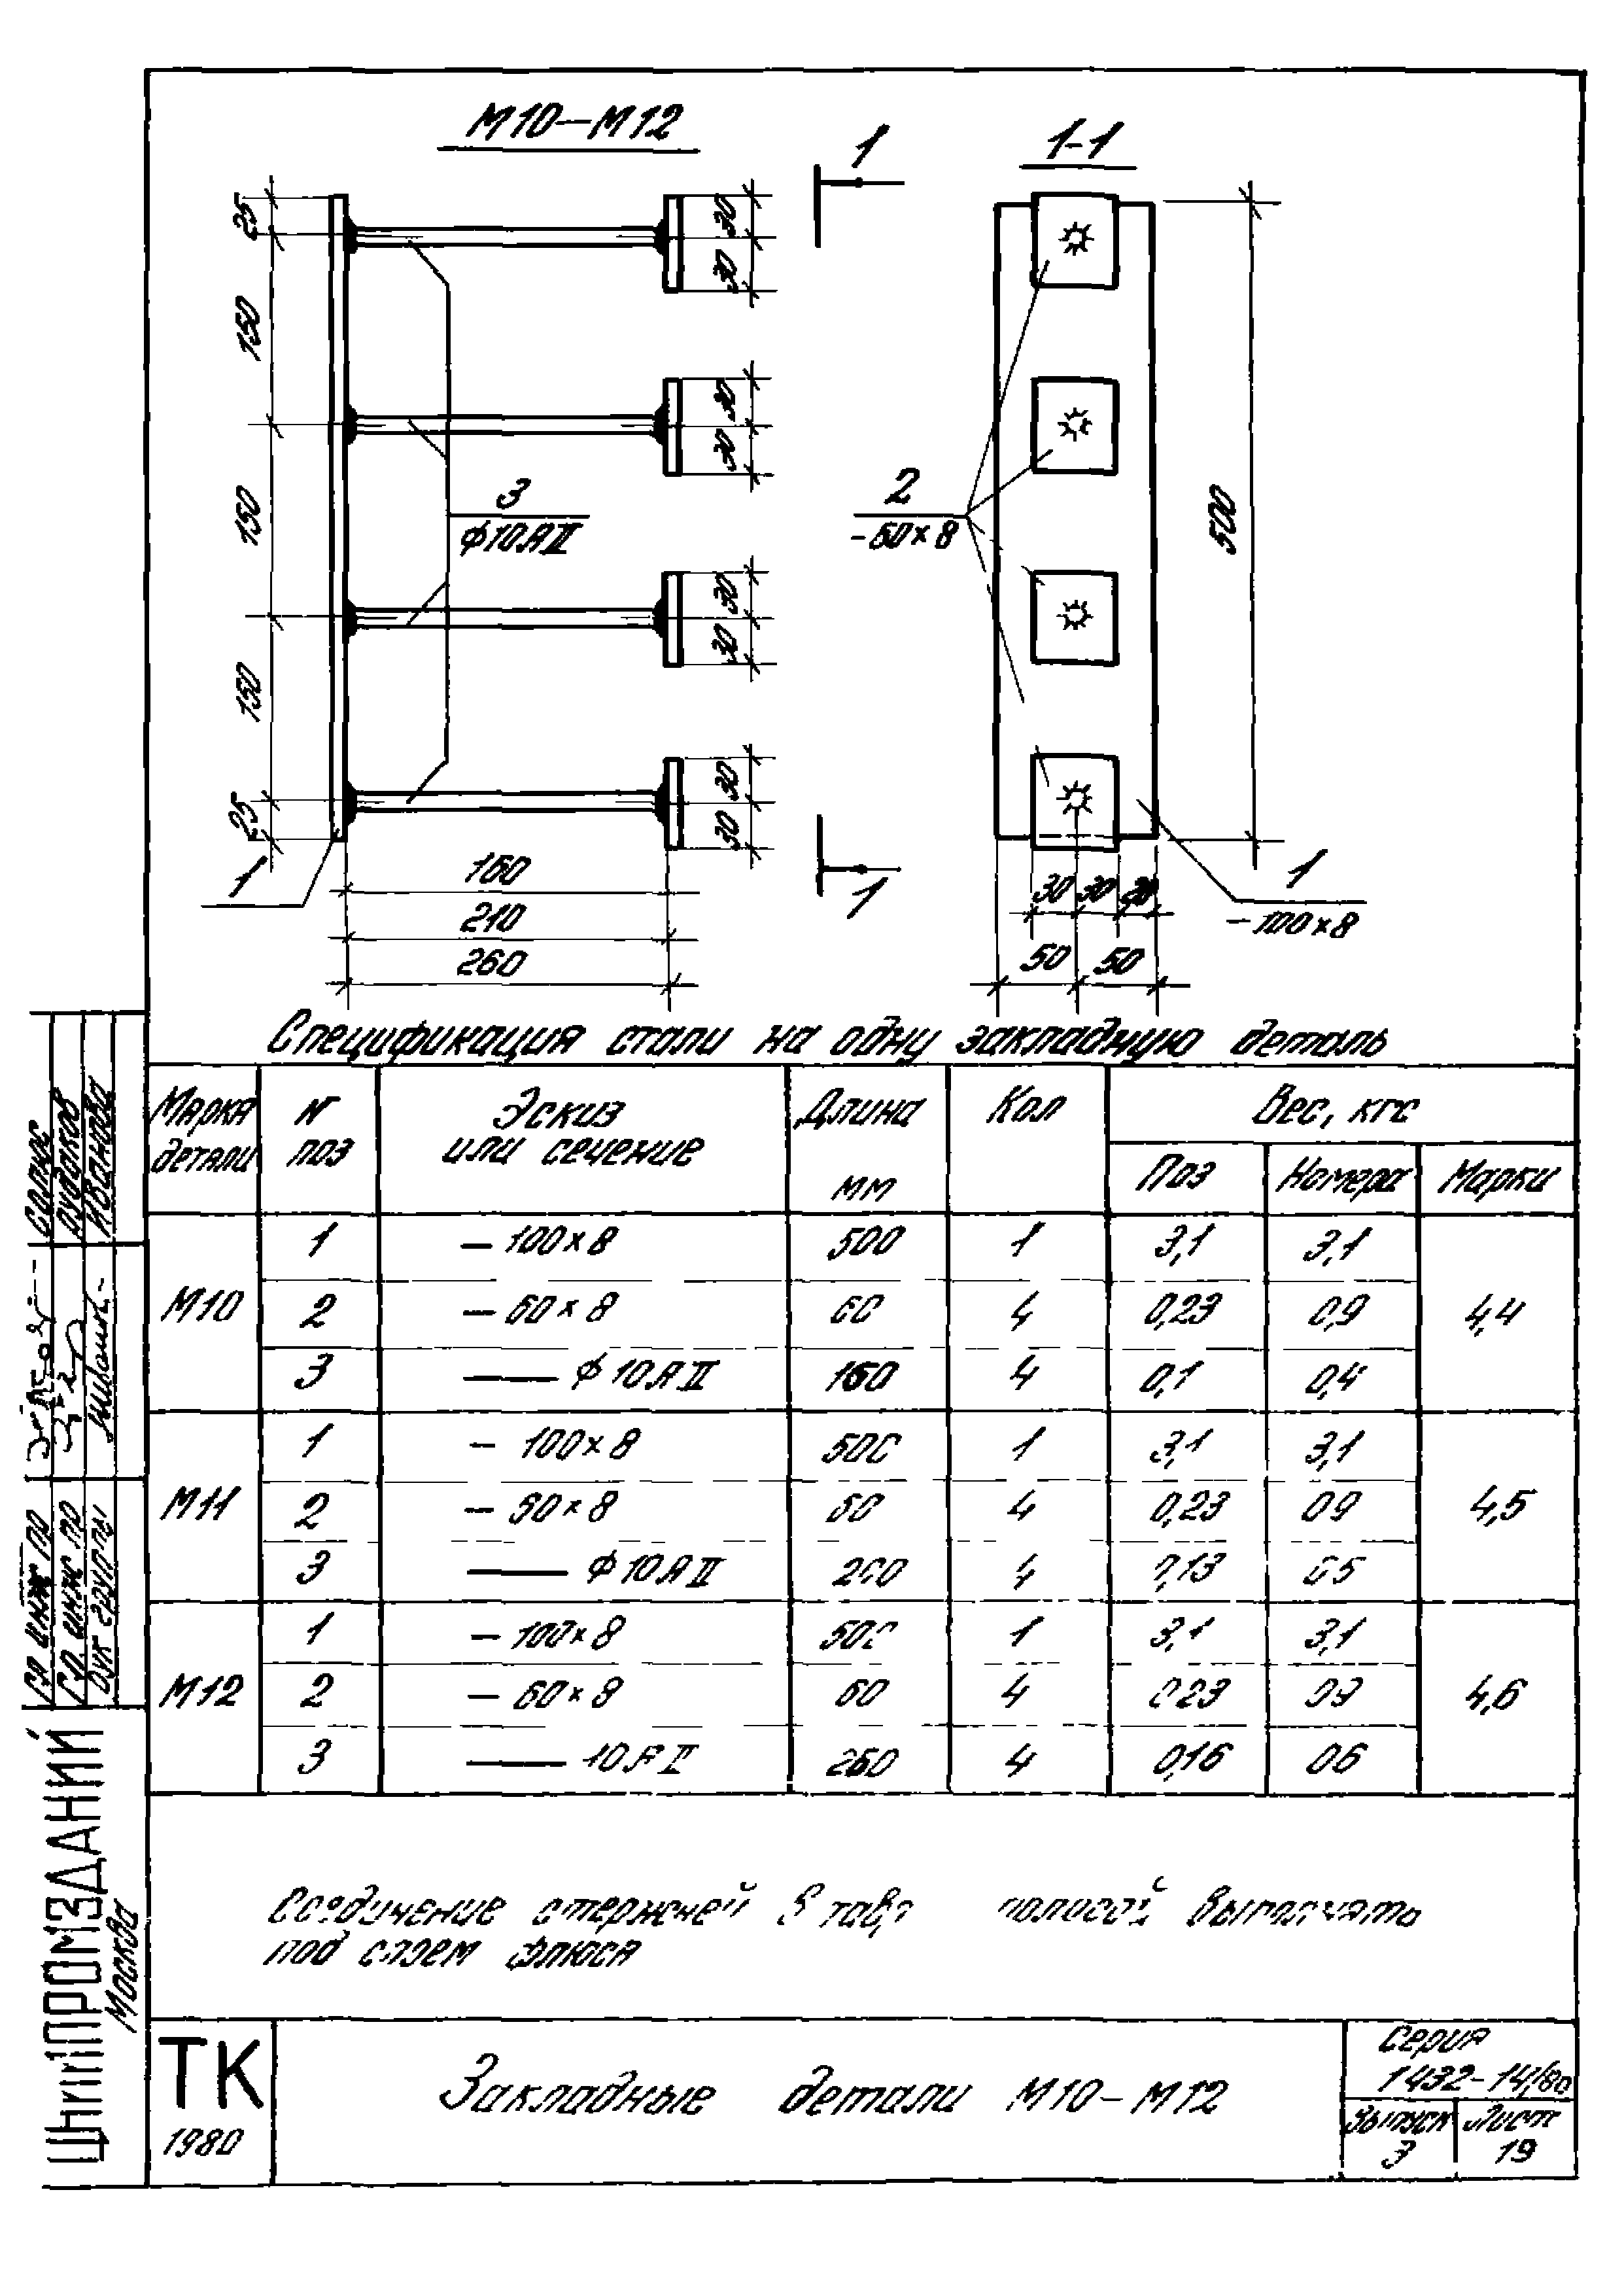 М10-М12
1
1-1
25
150
150
150
25
30
30
30
30
30
30
30
30
3
ф10АII
2
-60×8
500
1
160
210
260
1
30 30 20
50 50
1
-100×8
Спецификация стали на одну закладную деталь
Марка детали
№ поз
Эскиз или сечение
Длина мм
Кол
Вес, кгс
Поз Номера Марки
М10
1 -100×8 500 1 3,1 3,1
2 -60×8 60 4 0,23 0,9 4,4
3 ф10АII 160 4 0,1 0,4
М11
1 -100×8 500 1 3,1 3,1
2 -60×8 60 4 0,23 09 4,5
3 ф10АII 4 0,13 05
М12
1 -100×8 500 1 3,1 3,1
2 -60×8 60 4 0,23 09 4,6
3 10АII 260 4 0,16 06
Соединение стержней в тавр полосой выполнять
под слоем флюса
ТК
1980
Закладные детали М10-М12
Серия
1432-14/80
Выпуск
3
Лист
19
ЦНИИПРОМЗДАНИЙ
Москва
Гл инж пр
Гл инж пр
Рук группы
Иванова